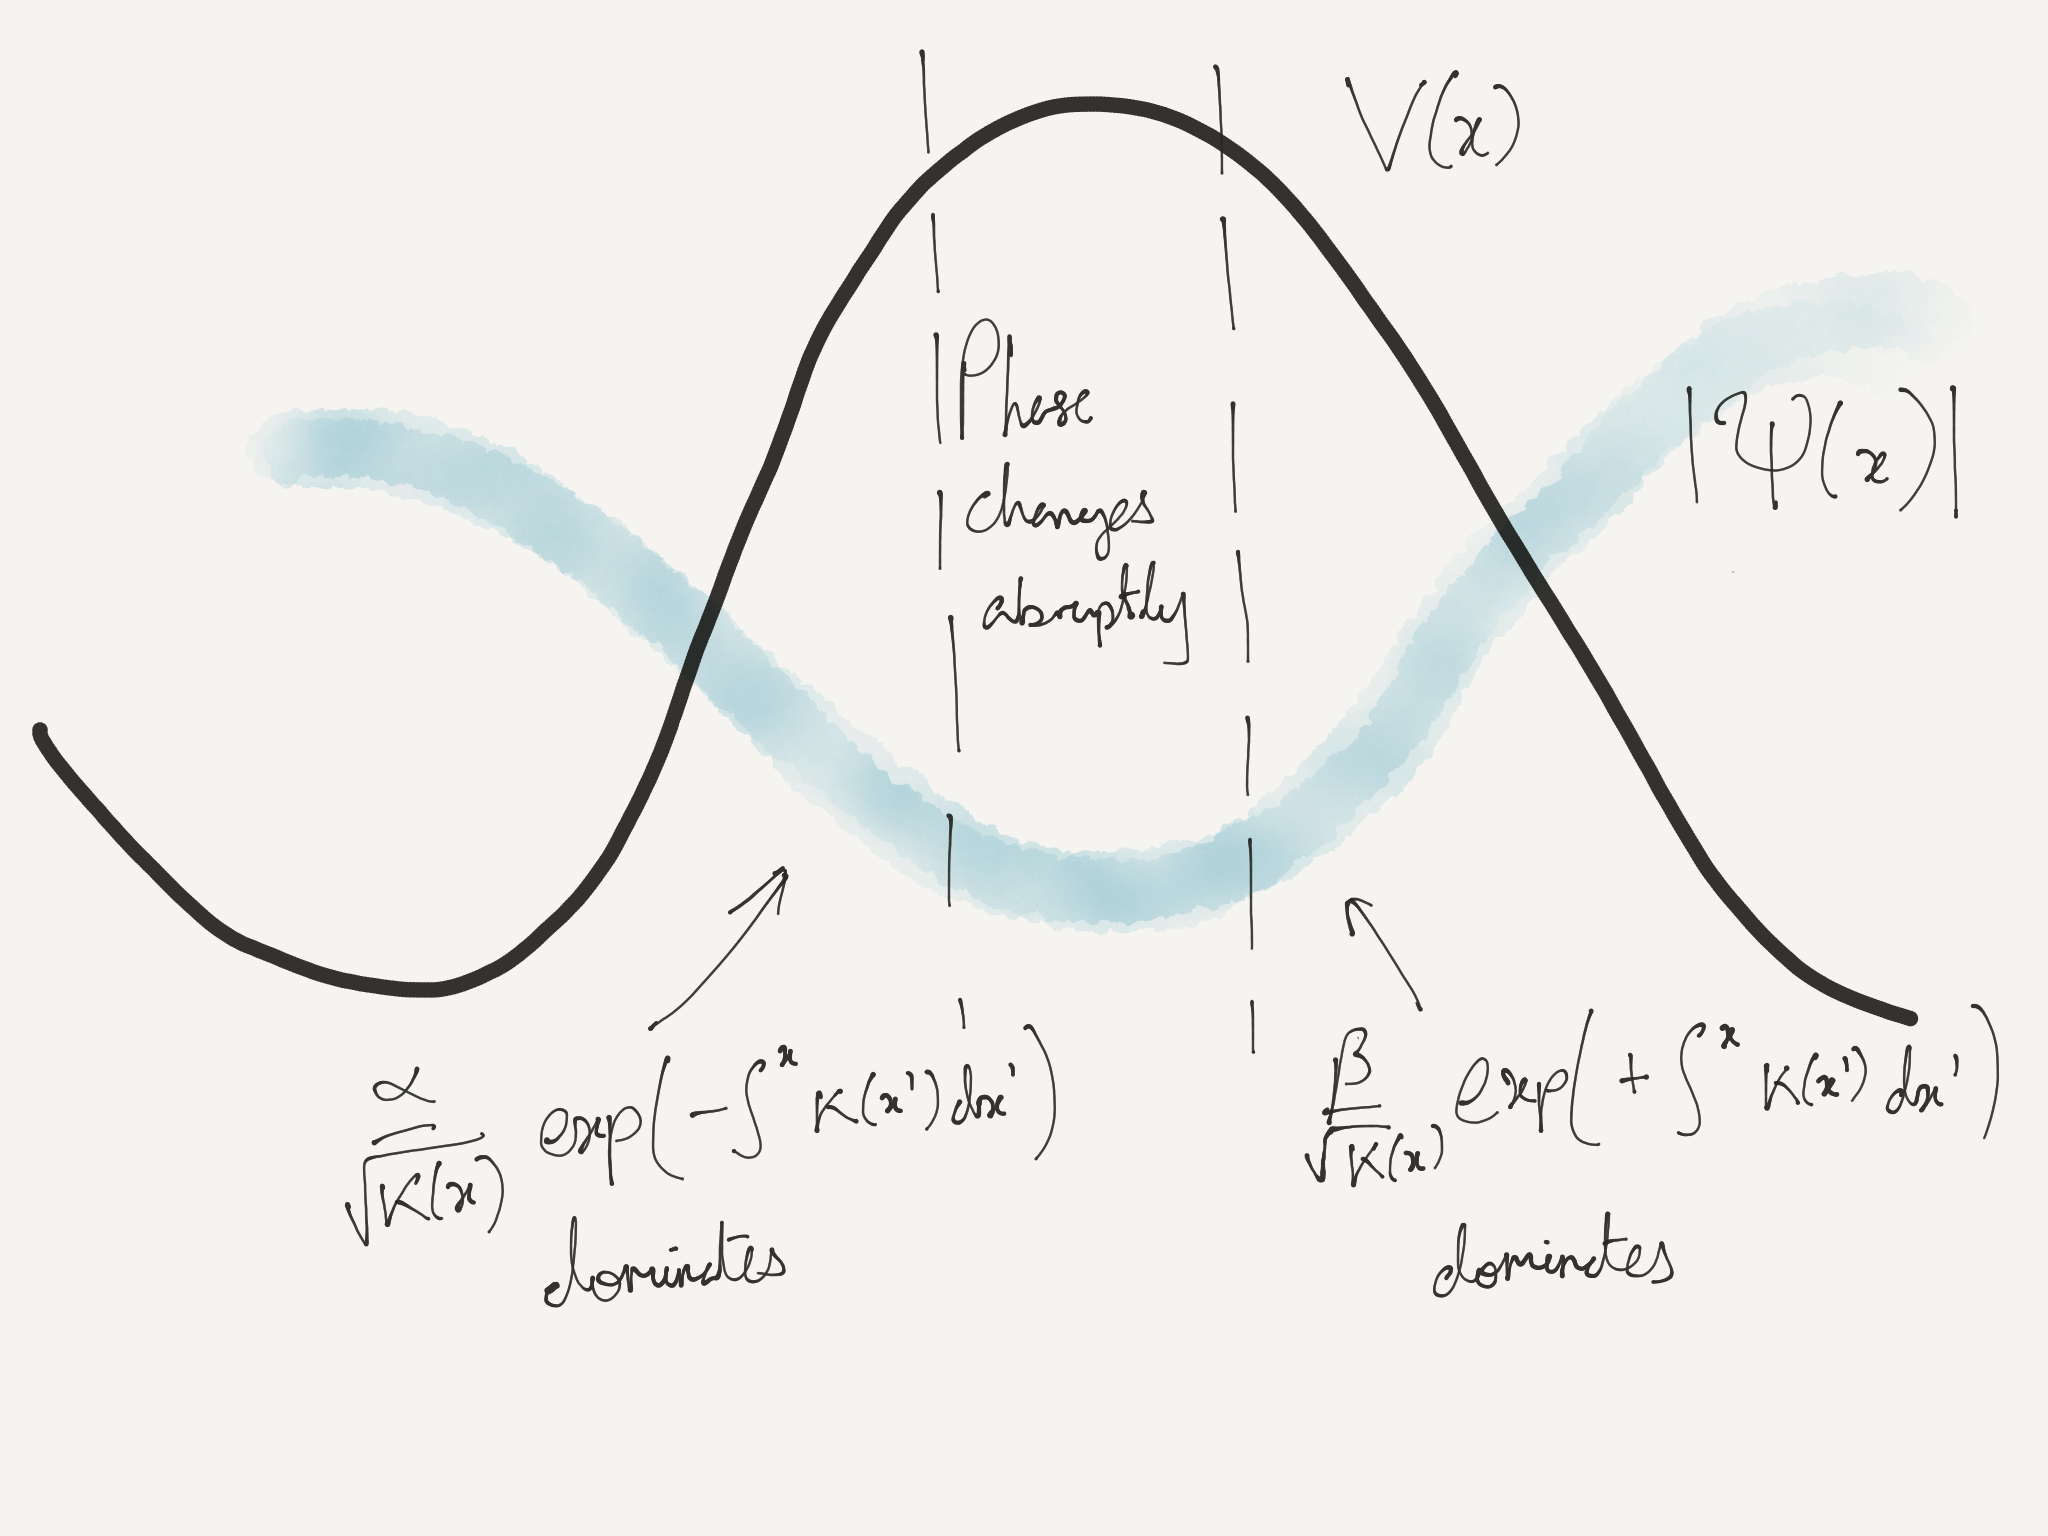 V(x)
|Ψ(x)|
Phase
changes
abruptly
α/√K(x) exp(-∫^x K(x') dx')
dominates
β/√K(x) exp(+∫^x K(x') dx')
dominates